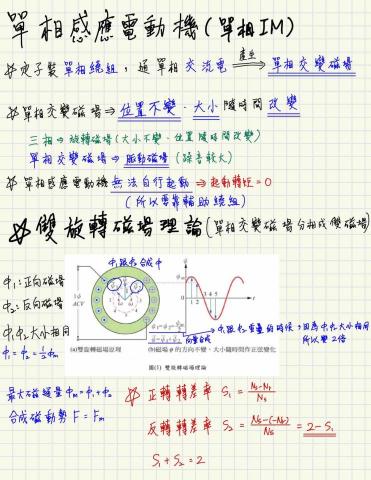 單相感應電動機(單相IM)
定子裝單相繞組,通單相交流電 產生⇒ 單相交變磁場
單相交變磁場⇒位置不變、大小隨時間改變
三相⇒旋轉磁場(大小不變、位置隨時間改變)
單相交變磁場⇒脈動磁場(噪音較大)
單相感應電動機無法自行起動⇒起動轉矩=0
(所以要靠輔助繞組)
雙旋轉磁場理論(單相交變磁場分相成雙磁場)
ϕ₁跟ϕ₂合成ϕ
ϕ₁:正向磁場
ϕ₂:反向磁場
ϕ₁ϕ₂大小相同
ϕ₁=ϕ₂=½ϕm
ACV
1 2 3 4 5
向量合成
ϕ₁跟ϕ₂重疊的時候,因為ϕ₁ϕ₂大小相同
所以變2倍
(a)雙旋轉磁場原理
(b)磁場ϕ的方向不變,大小隨時間作正弦變化
圖(1) 雙旋轉磁場理論
最大磁通量ϕm=ϕ₁+ϕ₂
合成磁動勢F=Fm
正轉轉差率 S₁ = (Ns-Nr)/Ns
反轉轉差率 S₂ = (Ns-(-Nr))/Ns = 2-S₁
S₁+S₂=2